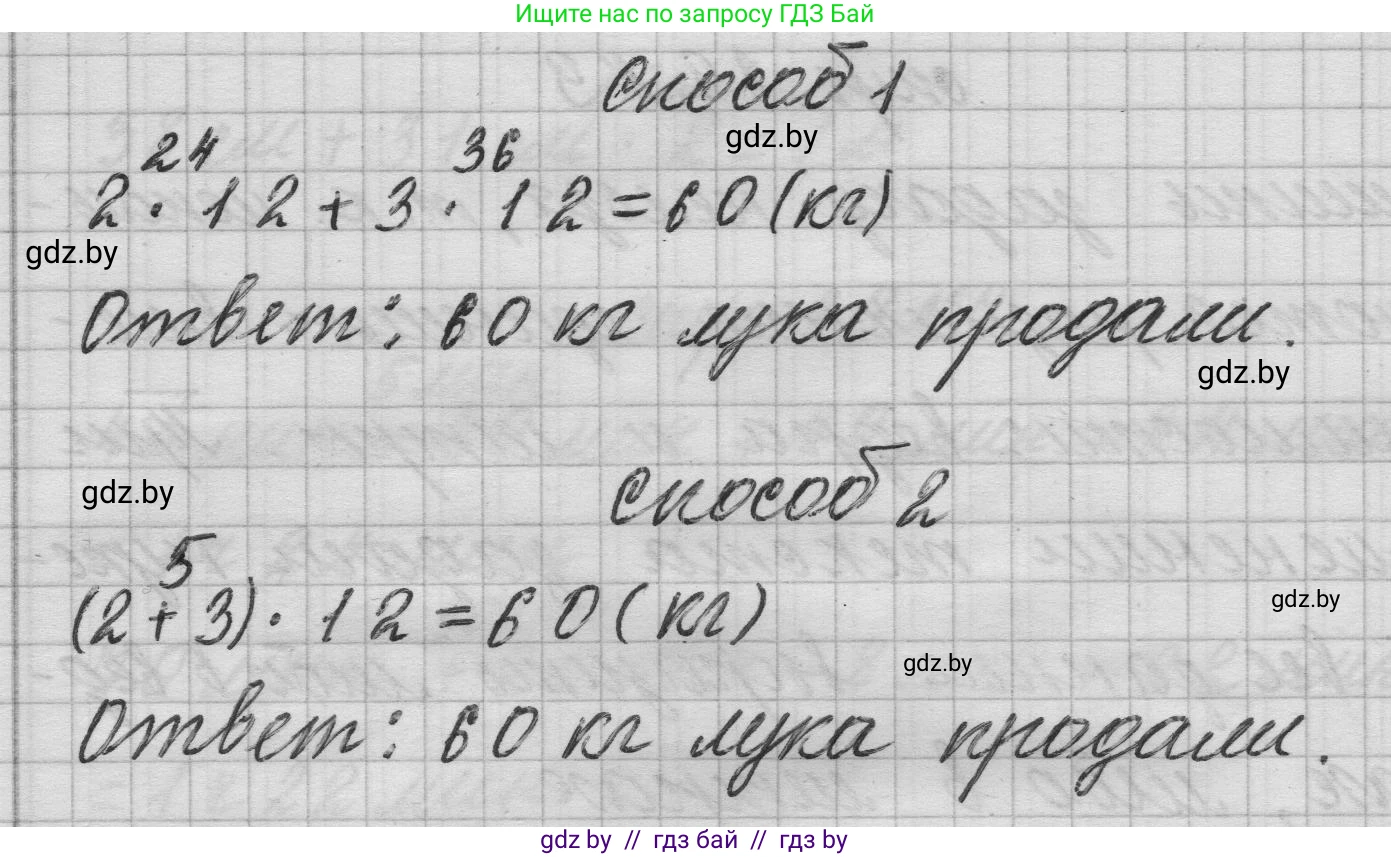 Ищите нас по запросу ГДЗ Бай
Способ 1
gdz.by
24 36
2 · 12 + 3 · 12 = 60 (кг)
gdz.by
Ответ: 60 кг лука продали.
gdz.by
gdz.by
Способ 2
5
(2 + 3) · 12 = 60 (кг)
gdz.by
gdz.by
Ответ: 60 кг лука продали.
gdz by // гдз бай // гдз by